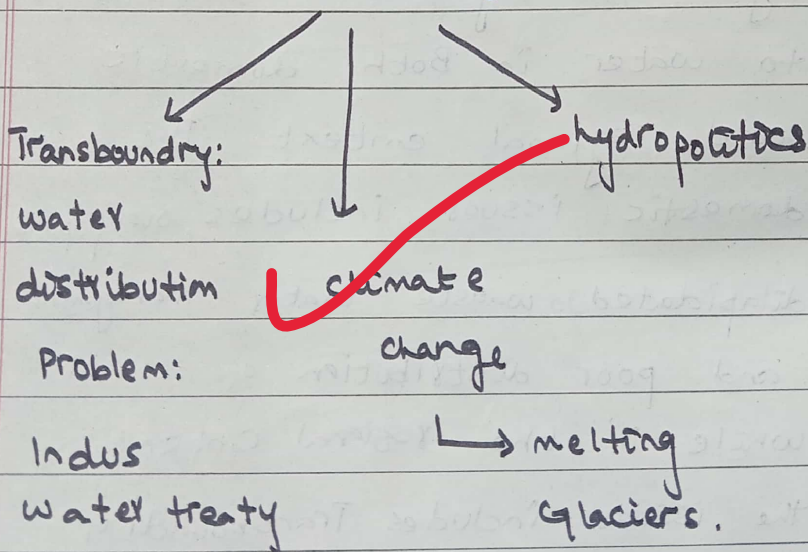 Transboundry:
water
distribution
Problem:
Indus
water treaty
climate
change
melting
Glaciers.
hydropolitics